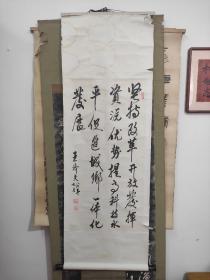 坚持改革开放发挥
资源优势提高科技水
平促进城乡一体化
发展